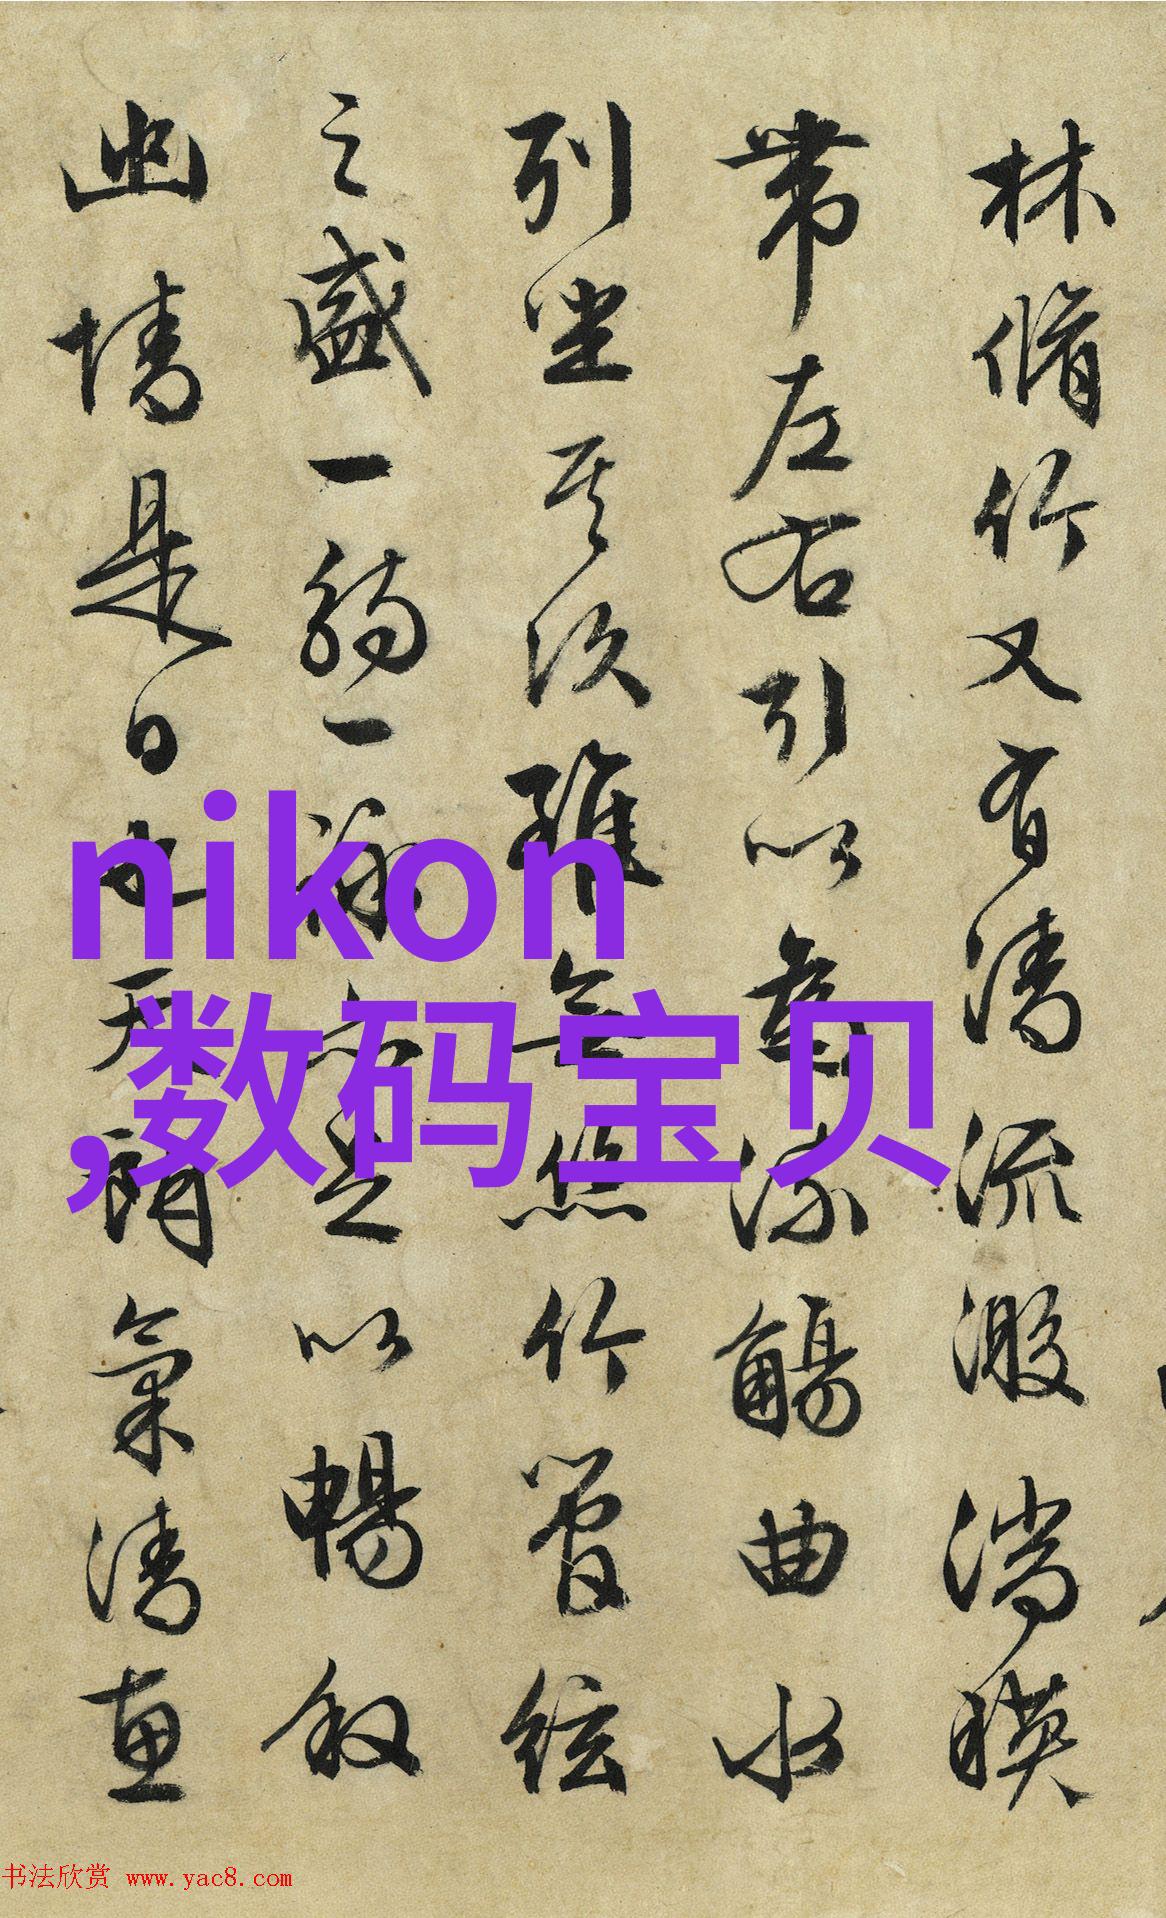 林脩竹又有清流激湍暎
帶左右引以為流觴曲水
列坐其次雖無絲竹管絃
之盛一觴一詠亦足以暢叙
幽情是日也天朗氣清惠
nikon
,数码宝贝
书法欣赏 www.yac8.com